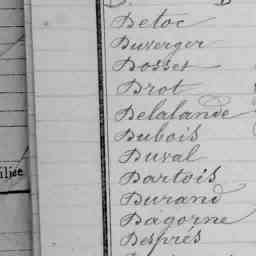 D
Detoc
Duverger
Dosses
Drot
Delalande
Dubois
Duval
Dartois
Durand
Dagorne
Després